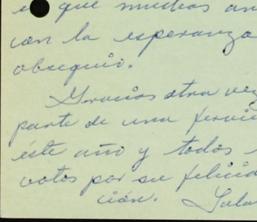 e que muchas an
con la esperanza
obsequio.
Gracias otra vez
parte de una
éste año y todos
votos por su felicid
ción.